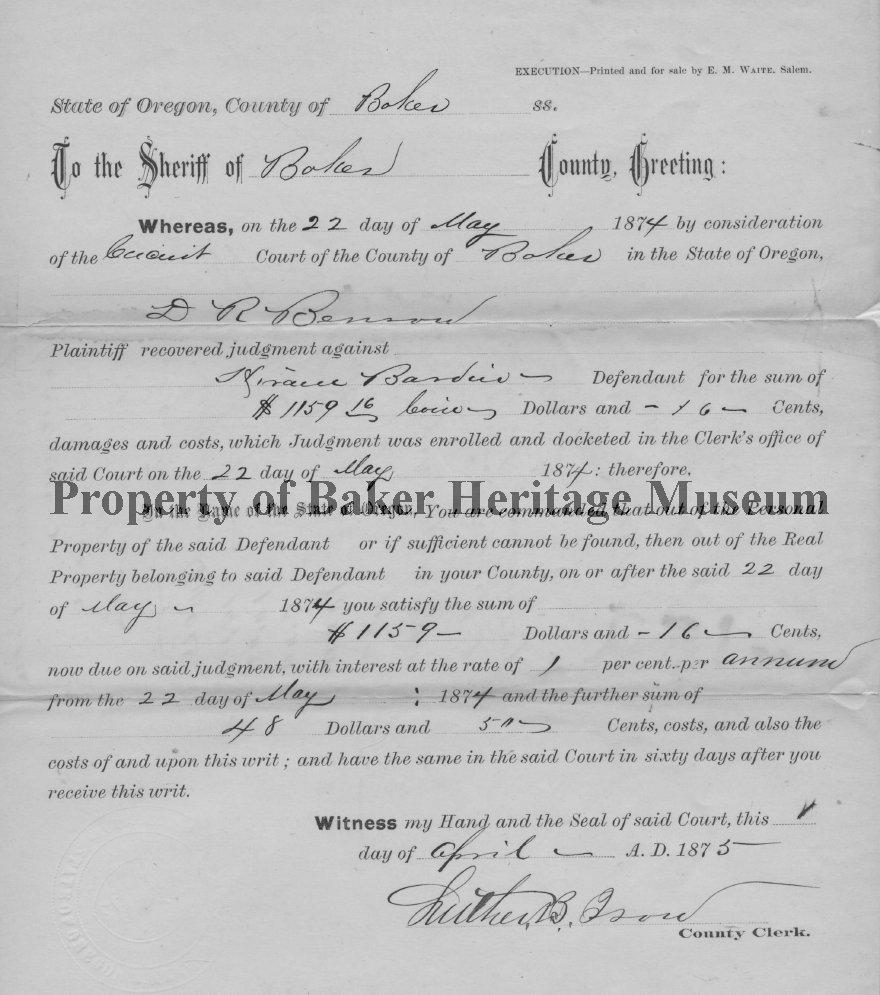 EXECUTION—Printed and for sale by E. M. WAITE, Salem.
State of Oregon, County of Baker ss.
To the Sheriff of Baker County, Greeting:
Whereas, on the 22 day of May 1874 by consideration
of the Circuit Court of the County of Baker in the State of Oregon,
D R Benson
Plaintiff recovered judgment against
Hiram Defendant for the sum of
$1159 16 Coin Dollars and -16- Cents,
damages and costs, which Judgment was enrolled and docketed in the Clerk's office of
said Court on the 22 day of May 1874: therefore,
Property of Baker Heritage Museum
In the Name of the State of Oregon, You are commanded that out of the Personal
Property of the said Defendant or if sufficient cannot be found, then out of the Real
Property belonging to said Defendant in your County, on or after the said 22 day
of May 1874 you satisfy the sum of
$1159- Dollars and -16- Cents,
now due on said judgment, with interest at the rate of 1 per cent. per annum
from the 22 day of May : 1874 and the further sum of
48 Dollars and 50 Cents, costs, and also the
costs of and upon this writ; and have the same in the said Court in sixty days after you
receive this writ.
Witness my Hand and the Seal of said Court, this 1
day of April A. D. 1875
Luther B. Ison
County Clerk.